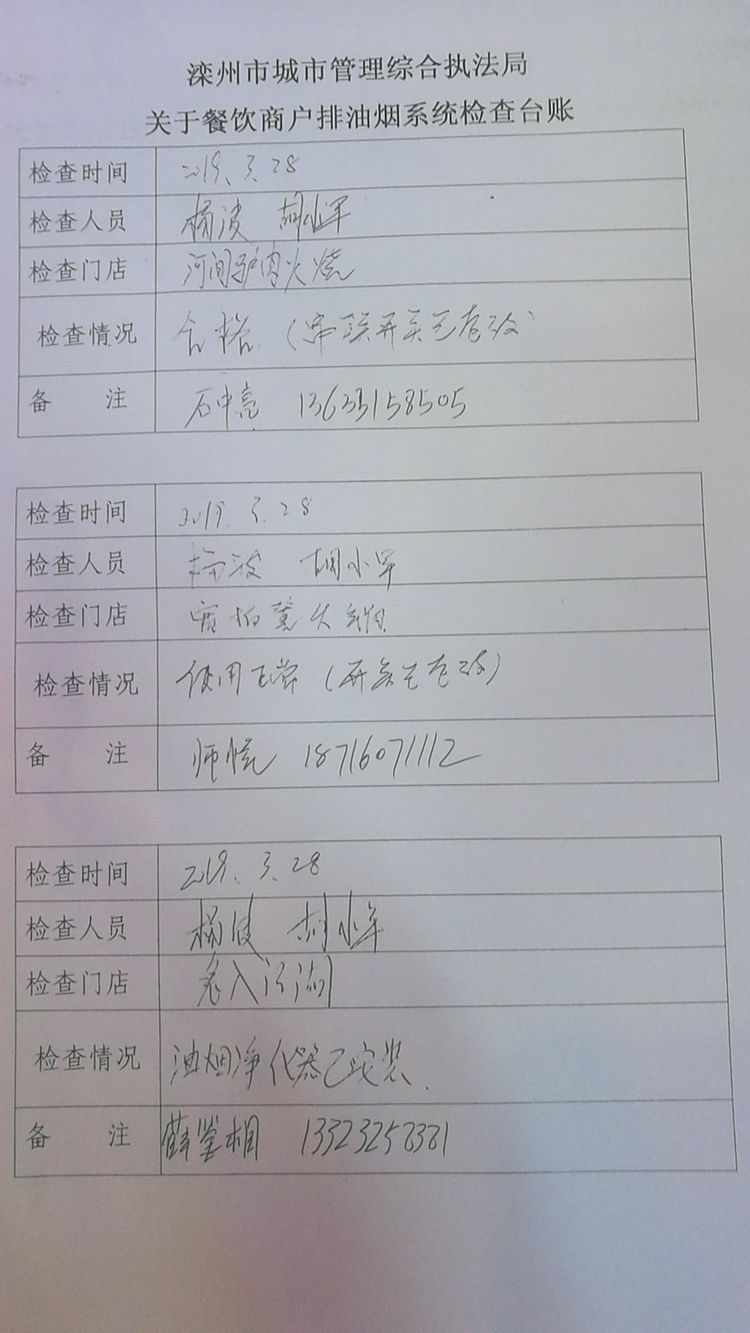 滦州市城市管理综合执法局
关于餐饮商户排油烟系统检查台账
检查时间 2019.3.28
检查人员 杨波 胡小军
检查门店 河间驴肉火烧
检查情况 合格（串联开关已整改）
备 注 石中亮 13633158505
检查时间 2019.3.28
检查人员 杨波 胡小军
检查门店
检查情况 使用正常（开关已整改）
备 注 师 18716071112
检查时间 2019.3.28
检查人员 杨波 胡小军
检查门店 老入江湖
检查情况 油烟净化器已安装.
备 注 薛 相 13323258381